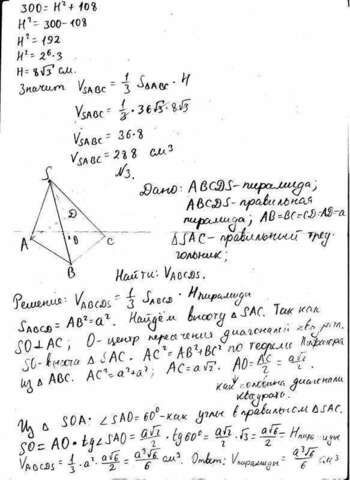 300 = H² + 108
H² = 300-108
H² = 192
H² = 2⁶·3
H = 8√3 см.
Значит V_SABC = 1/3 S_ΔABC · H
V_SABC = 1/3 · 36√3 · 8√3
V_SABC = 36·8
V_SABC = 288 см³
N3.
S
D
A
O
C
B
Дано: ABCDS-пирамида;
ABCDS-правильная
пирамида; AB=BC=CD=AD=a
ΔSAC - правильный треу-
гольник;
Найти: V_ABCDS.
Решение: V_ABCDS = 1/3 S_ABCD · H пирамиды
S_ABCD = AB² = a². Найдём высоту ΔSAC. Так как
SO⊥AC; O-центр пересечения диагоналей
SO-высота ΔSAC. AC² = AB²+BC² по теореме Пифагора
из ΔABC. AC² = a²+a²; AC = a√2. AO = AC/2 = a√2/2
как половина диагонали
квадрата.
Из ΔSOA: ∠SAO = 60° - как углы в правильном ΔSAC.
SO = AO · tg∠SAO = a√2/2 · tg60° = a√2/2 · √3 = a√6/2 - H пирамиды
V_ABCDS = 1/3 · a² · a√6/2 = a³√6/6 см³. Ответ: V пирамиды = a³√6/6 см³